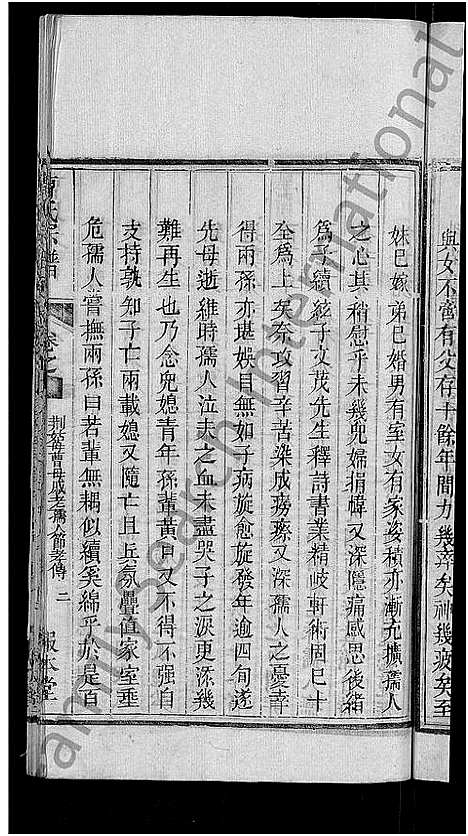 與女不啻有父存十餘年間力幾瘁矣神幾疲矣至
妹巳嫁弟巳婚男有室女有家姿積亦漸充擴孺人
之心其稍慰乎未幾兜婦捐幃又深隱痛感思後緒
為子續絃子文茂先生釋詩書業精岐軒術固巳十
全為上矣奈攻習辛苦染成癆瘵又深孺人之憂幸
得兩孫亦堪娛目無如子病旋愈旋發年逾四旬遂
先母逝維時孺人泣夫之血未盡哭子之淚更添幾
難再生也乃念兜媳青年孫輩黃口又不得不强自
支持孰知子亡兩載媳又隨亡且兵氛疊值家室垂
危孺人嘗撫兩孫曰若輩無耦似續奚綿乎於是百
氏宗譜
卷之
二
報本堂
FamilySearch International